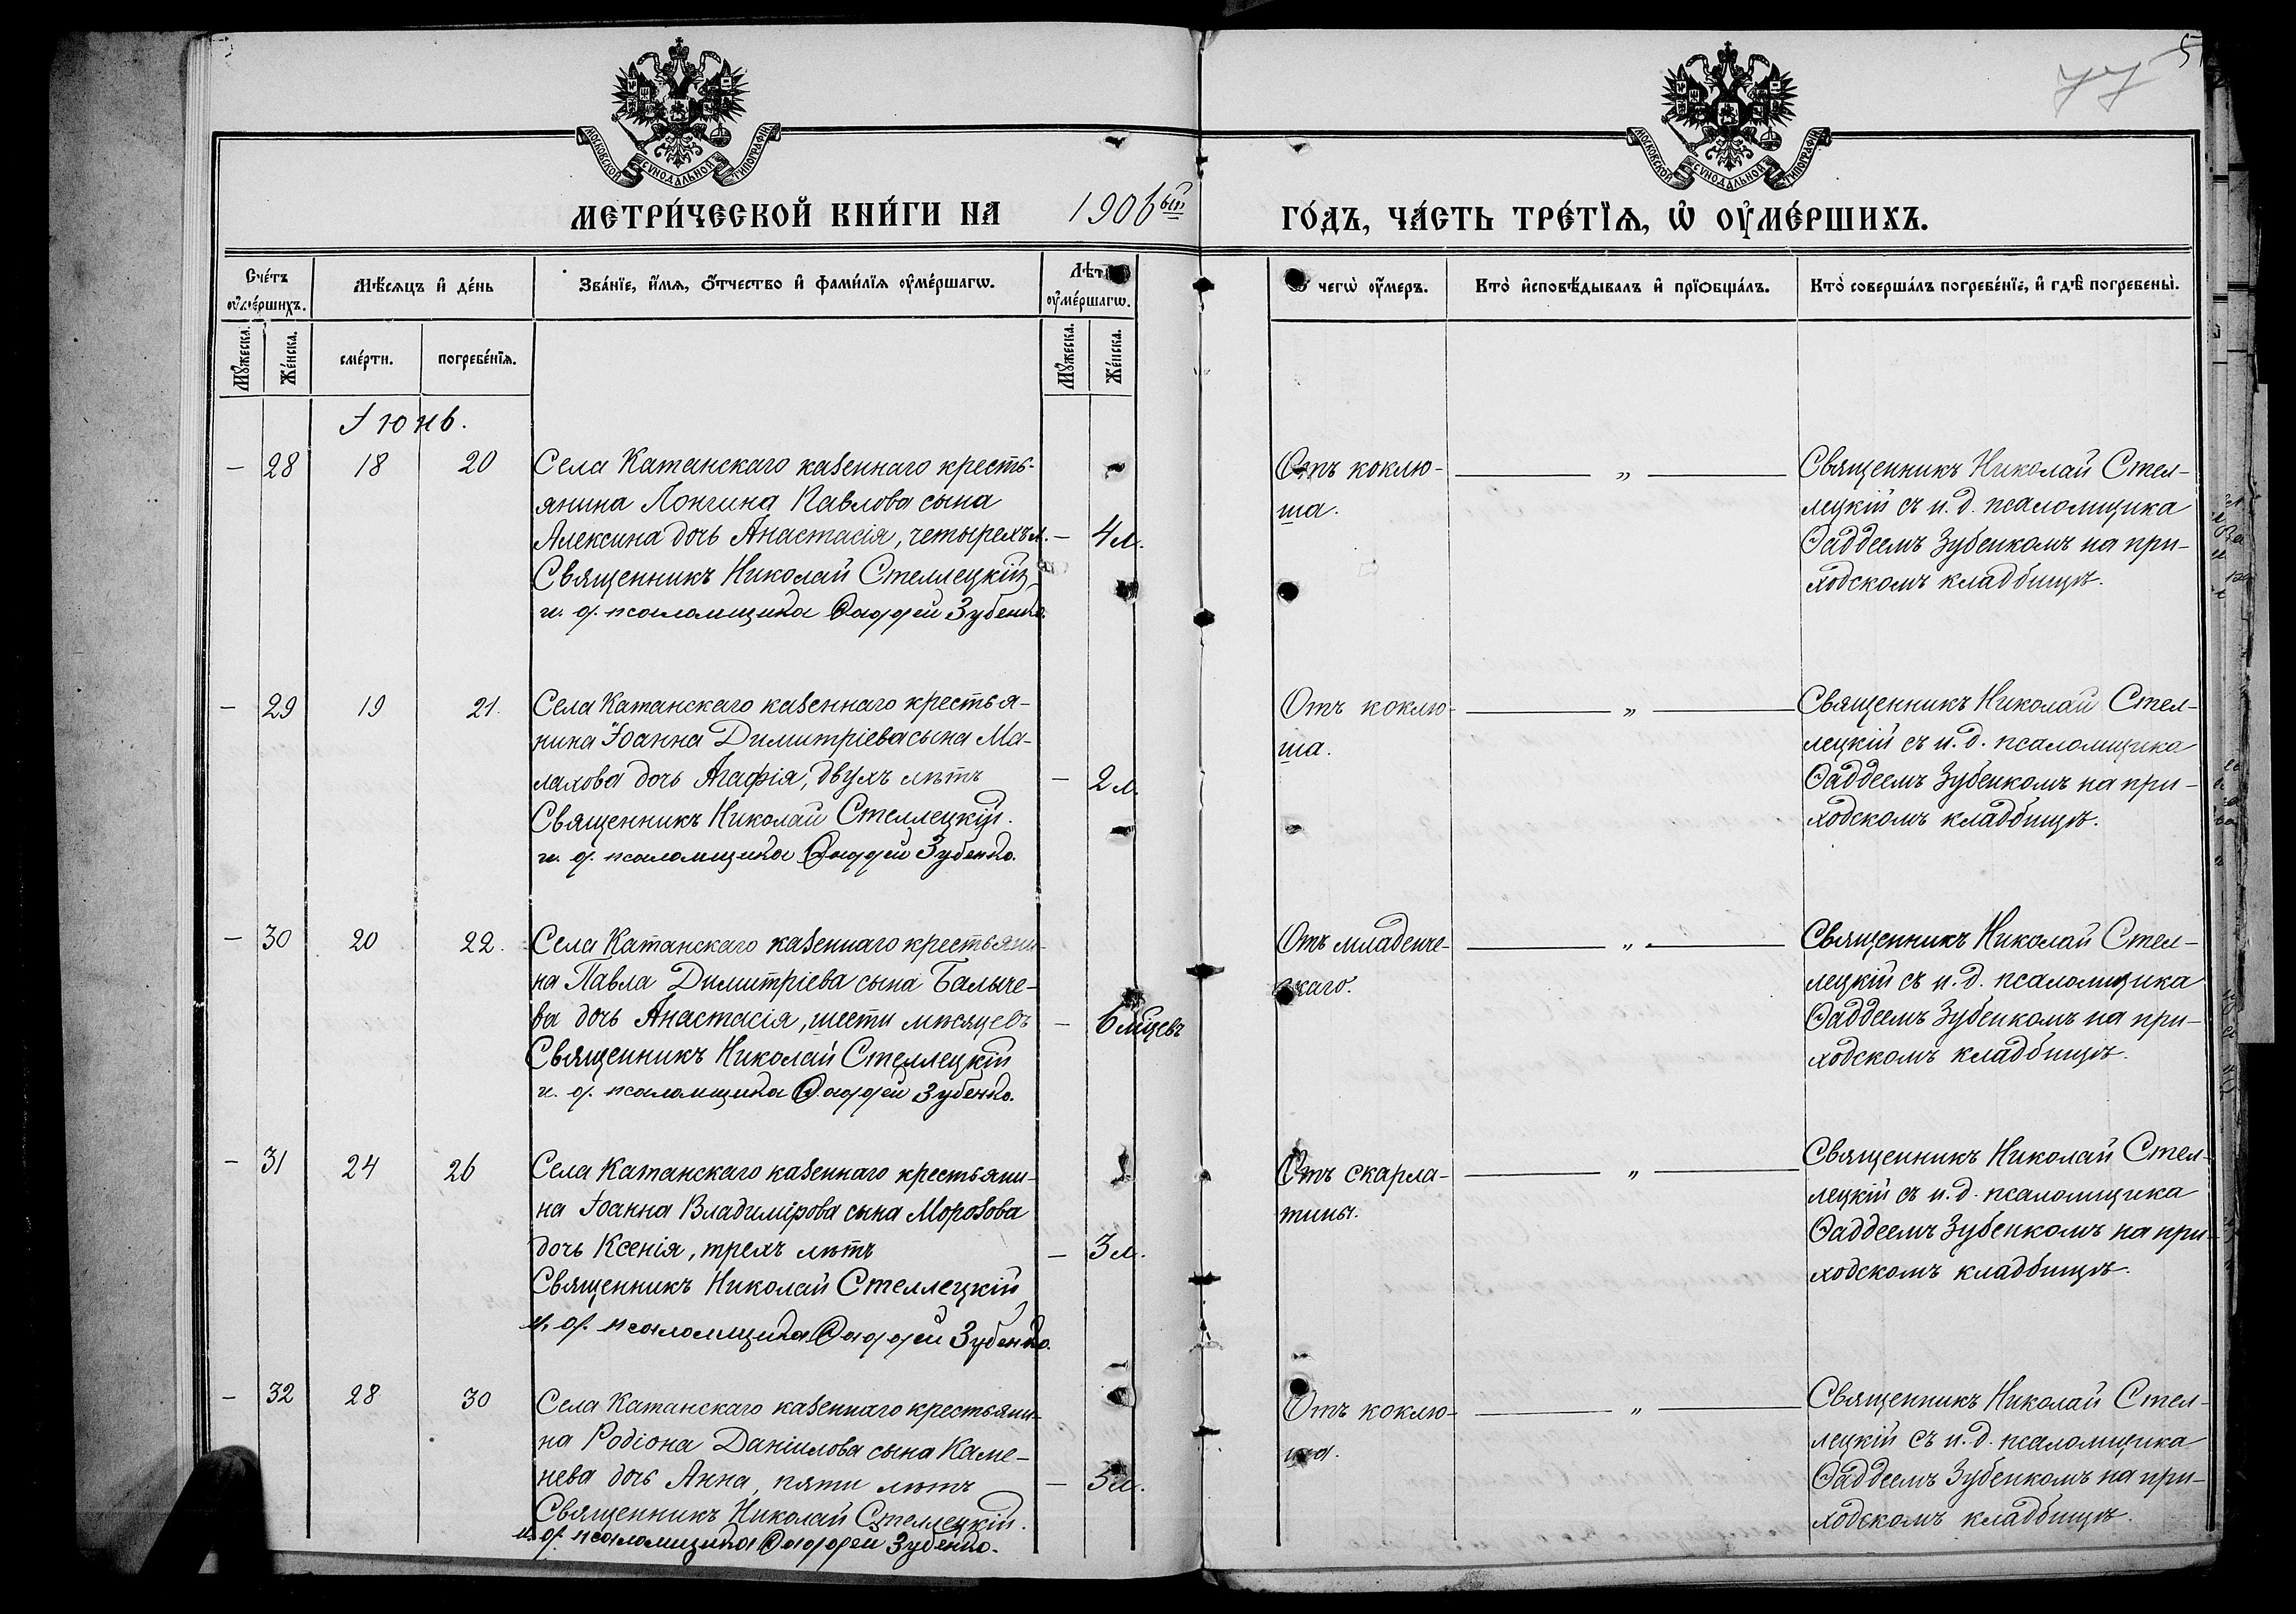 77
МОСКОВСКОЙ СѴНОДАЛЬНОЙ ТИПОГРАФІИ
МОСКОВСКОЙ СѴНОДАЛЬНОЙ ТИПОГРАФІИ
МЕТРИ́ЧЕСКОЙ КНИ́ГИ НА 1906 ой ГО́ДЪ, ЧА́СТЬ ТРЕ́ТЇѦ, Ѡ҆ ОУ҆МЕ́РШИХЪ.
Сче́тъ оу҆ме́ршихъ.
Мѣ́сяцъ и҆ де́нь
Зва́нїе, и҆́мѧ, ѻ҆́тчество и҆ фами́лїѧ оу҆ме́ршагѡ.
Лѣт оу҆ме́ршагѡ.
чегѡ̀ оу҆́меръ.
Кто̀ и҆сповѣ́дывалъ и҆ прїѻбща́лъ.
Кто̀ соверша́лъ погребе́нїе, и҆ гдѣ̀ погребены̀.
Мꙋ́жеска.
Же́нска.
сме́рти.
погребе́нїѧ.
Мꙋ́жеска.
Же́нска.
Іюнь.
— 28 18 20 Села Катанскаго казеннаго кресть-
янина Лонгина Павлова сына
Алексина дочь Анастасія, четырехъ л. — 4 л.
Священникъ Николай Стеллецкій
и. д. псаломщика Ѳаддей Зубенко.
Отъ коклю-
ша.
— „ —
Священникъ Николай Стел-
лецкій съ и. д. псаломщика
Ѳаддеемъ Зубенкомъ на при-
ходскомъ кладбищѣ.
— 29 19 21. Села Катанскаго казеннаго крестья-
нина Іоанна Димитріева сына Ма-
лахова дочь Агафія, двухъ лѣтъ — 2 л.
Священникъ Николай Стеллецкій.
и. д. псаломщика Ѳаддей Зубенко.
Отъ коклю-
ша.
— „ —
Священникъ Николай Стел-
лецкій съ и. д. псаломщика
Ѳаддеемъ Зубенкомъ на при-
ходскомъ кладбищѣ.
— 30 20 22. Села Катанскаго казеннаго крестьяни-
на Павла Димитріева сына Балыче-
ва дочь Анастасія, шести мѣсяцевъ — 6 мѣцевъ
Священникъ Николай Стеллецкій
и. д. псаломщика Ѳаддей Зубенко.
Отъ младенче-
скаго.
— „ —
Священникъ Николай Стел-
лецкій съ и. д. псаломщика
Ѳаддеемъ Зубенкомъ на при-
ходскомъ кладбищѣ.
— 31 24 26 Села Катанскаго казеннаго крестьяни-
на Іоанна Владимірова сына Морозова
дочь Ксенія, трехъ лѣтъ — 3 л.
Священникъ Николай Стеллецкій
и. д. псаломщика Ѳаддей Зубенко.
Отъ скарла-
тины.
— „ —
Священникъ Николай Стел-
лецкій съ и. д. псаломщика
Ѳаддеемъ Зубенкомъ на при-
ходскомъ кладбищѣ.
— 32 28 30 Села Катанскаго казеннаго крестьяни-
на Родіона Даніилова сына Каме-
нева дочь Анна, пяти лѣтъ — 5 л.
Священникъ Николай Стеллецкій.
и. д. псаломщика Ѳаддей Зубенко.
Отъ коклю-
ша.
— „ —
Священникъ Николай Стел-
лецкій съ и. д. псаломщика
Ѳаддеемъ Зубенкомъ на при-
ходскомъ кладбищѣ.